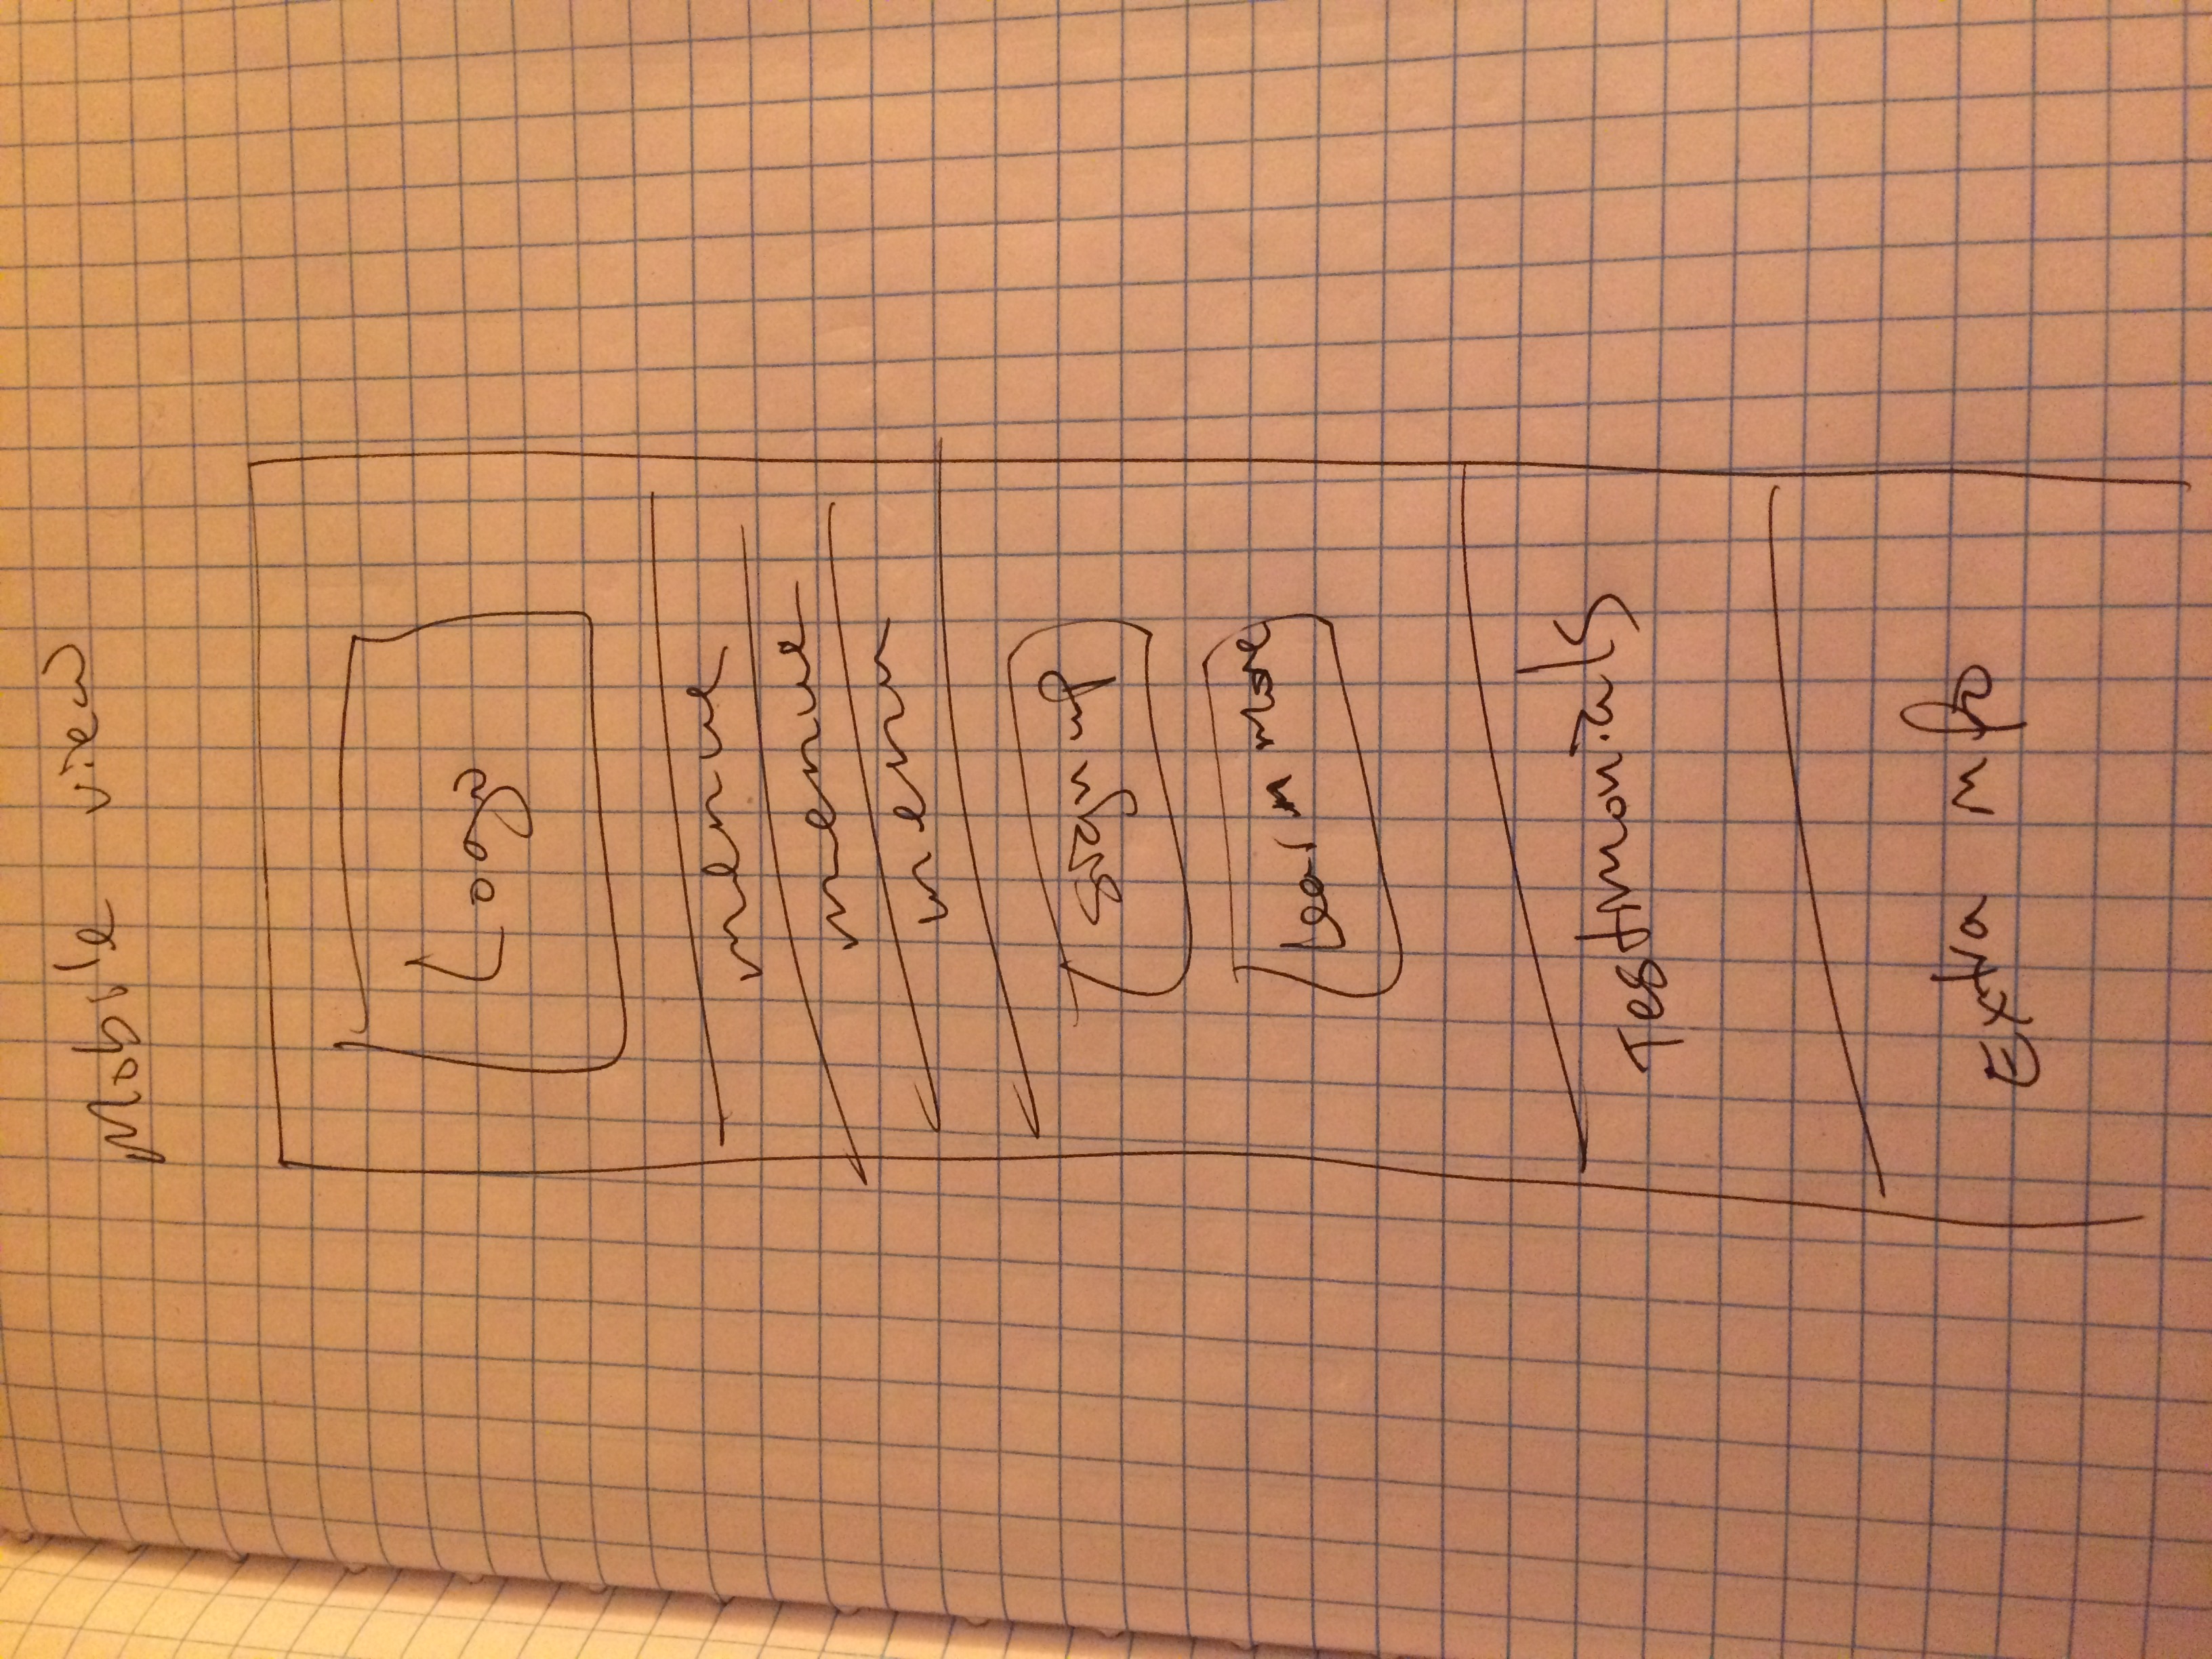 Mobile view
Logo
menue
menue
menu
sign up
Learn more
Testimonials
Extra info